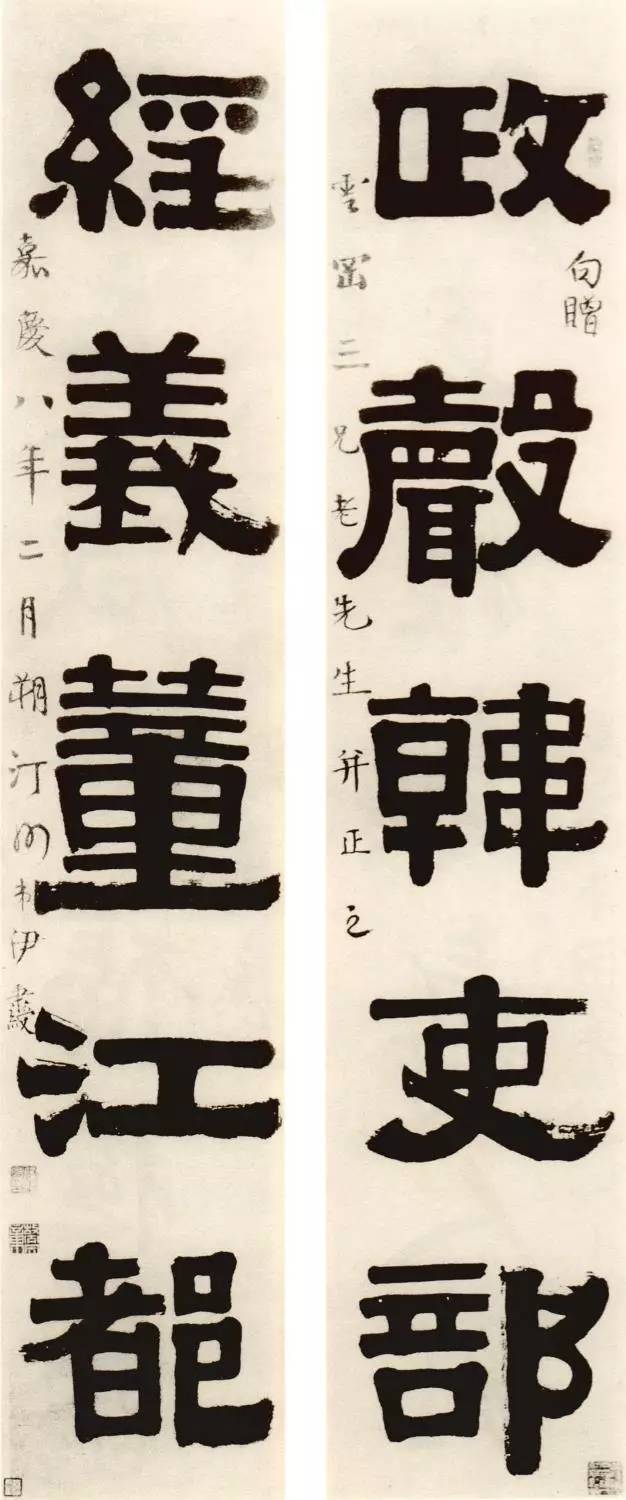 句贈
政聲韓吏部
雲崗三兄老先生并正之
經義董江都
嘉慶八年二月朔汀州弟伊秉綬